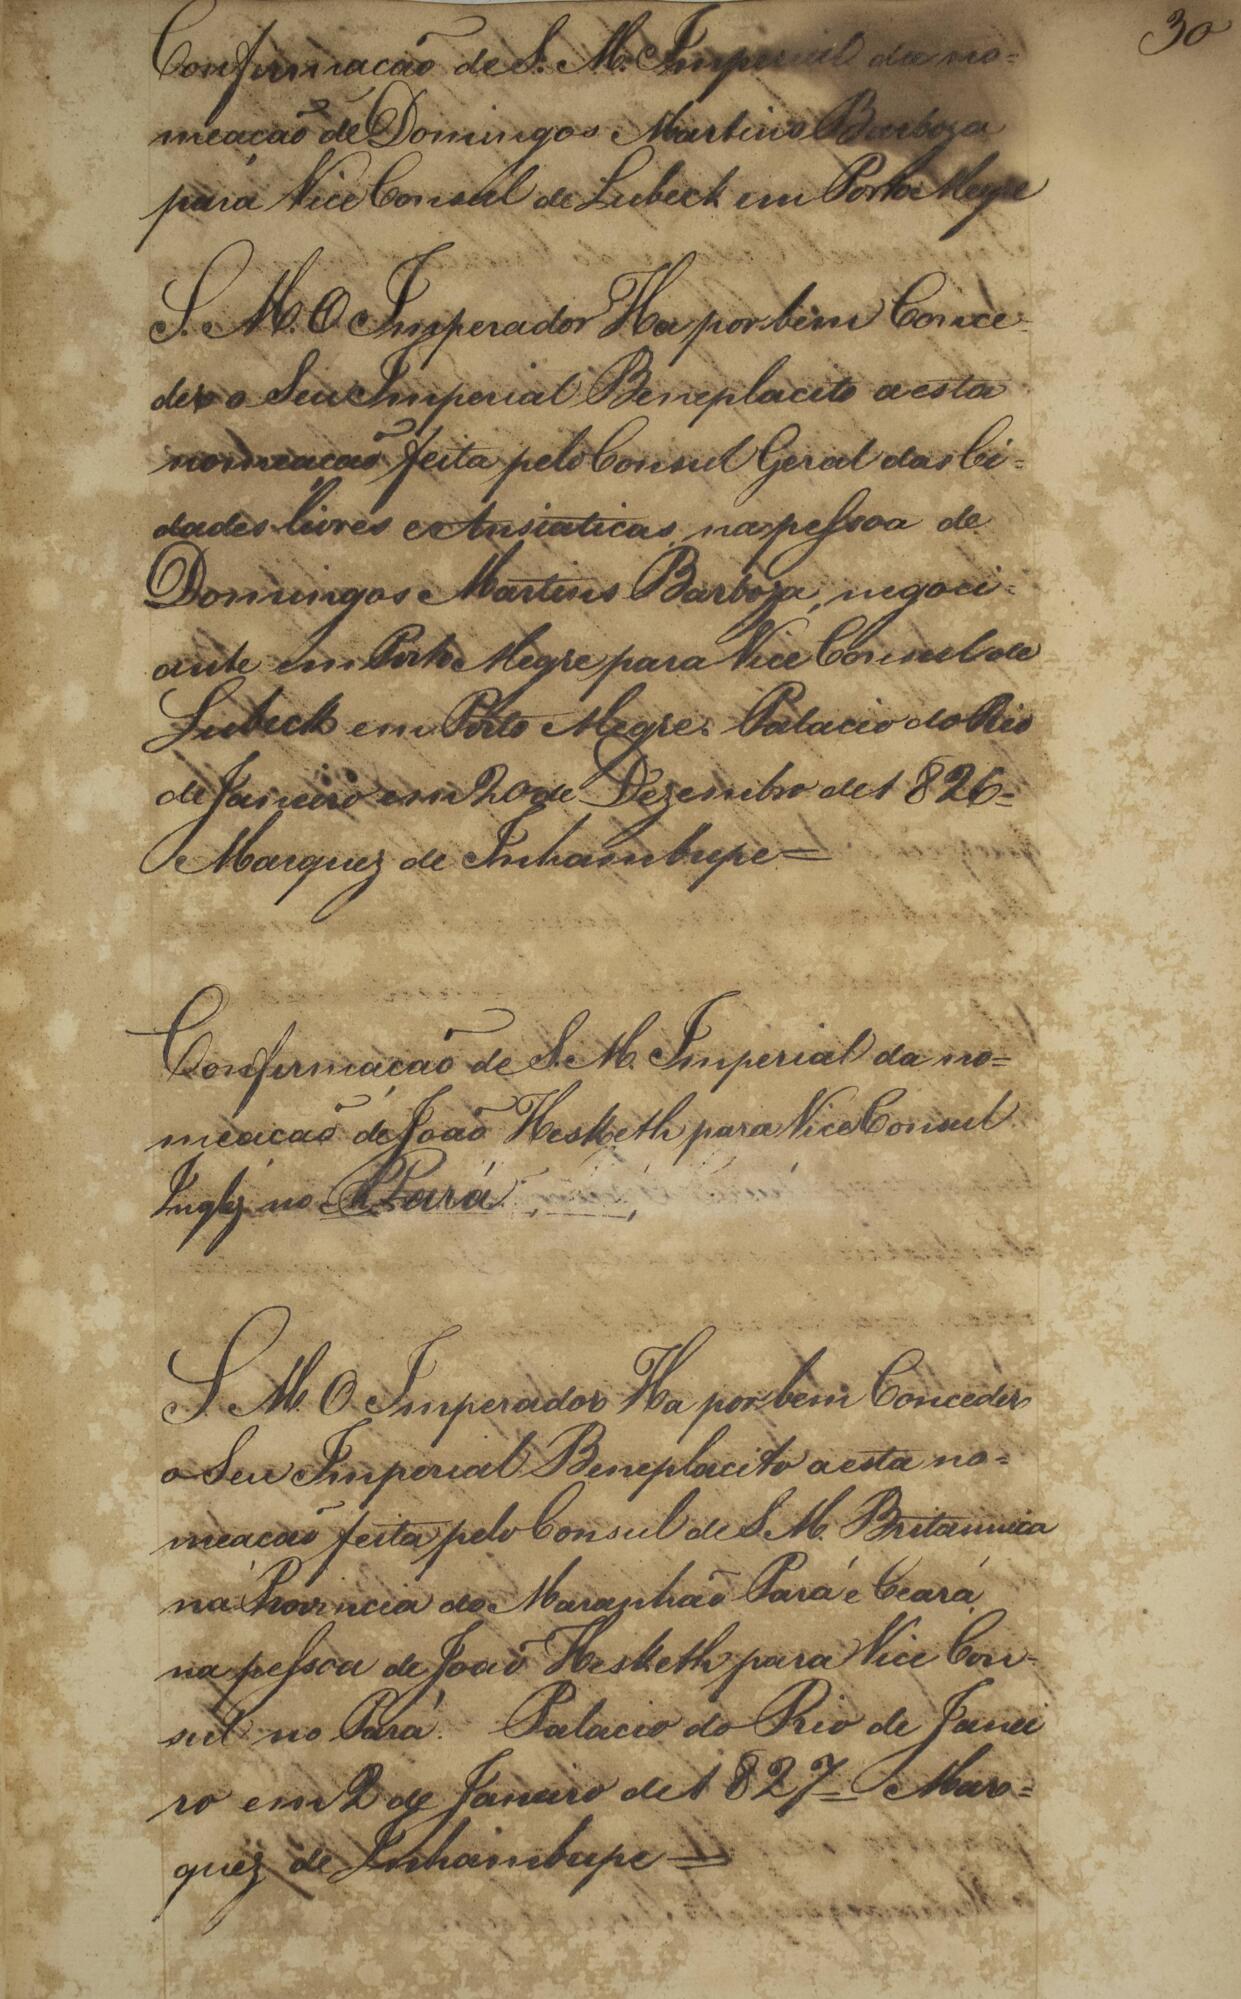 30
Confirmação de S. M. Imperial da no=
meação de Domingos Martins Barboza
para Vice Consul de Lubeck em Porto Alegre
S. M. O Imperador Ha por bem Conce-
der o Seu Imperial Beneplacito a esta
nomeação feita pelo Consul Geral das Ci=
dades livres e Ansiaticas, na pessoa de
Domingos Martins Barboza, negoci-
ante em Porto Alegre para Vice Consul de
Lubeck em Porto Alegre. Palacio do Rio
de Janeiro em 20 de Dezembro de 1826=
Marquez de Inhambupe=
Confirmação de S. M. Imperial da no=
meação de João Hesketh para Vice Consul
Inglez no Pará
S. M. O Imperador Ha por bem Conceder
o Seu Imperial Beneplacito a esta no=
meacaõ feita pelo Consul de S. M. Britannica
na Provincia do Maranhão Pará e Ceará
na pessoa de João Hesketh para Vice Con-
sul no Pará. Palacio do Rio de Janei
ro em 2 de Janeiro de 1827= Mar=
quez de Inhambupe=